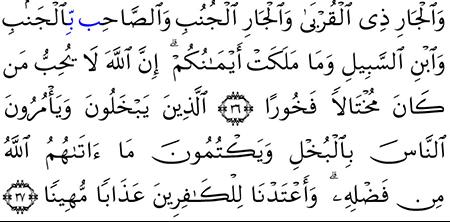 وَٱلْجَارِ ذِى ٱلْقُرْبَىٰ وَٱلْجَارِ ٱلْجُنُبِ وَٱلصَّاحِبِ بِّٱلْجَنۢبِ
وَٱبْنِ ٱلسَّبِيلِ وَمَا مَلَكَتْ أَيْمَـٰنُكُمْ ۗ إِنَّ ٱللَّهَ لَا يُحِبُّ مَن
كَانَ مُخْتَالًا فَخُورًا ﴿٣٦﴾ ٱلَّذِينَ يَبْخَلُونَ وَيَأْمُرُونَ
ٱلنَّاسَ بِٱلْبُخْلِ وَيَكْتُمُونَ مَا ءَاتَىٰهُمُ ٱللَّهُ
مِن فَضْلِهِۦ ۗ وَأَعْتَدْنَا لِلْكَـٰفِرِينَ عَذَابًا مُّهِينًا ﴿٣٧﴾